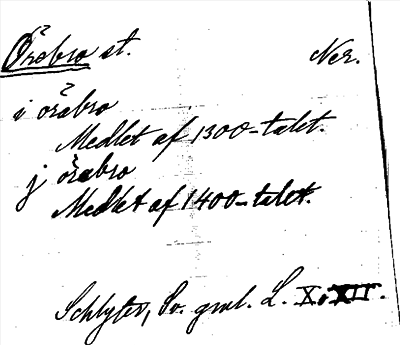 Örebro st. Ner.
i örabro
Medlet af 1300-talet.
j örabro
Medlet af 1400-talet.
Schlyter, Sv. gml. L. X o XII.